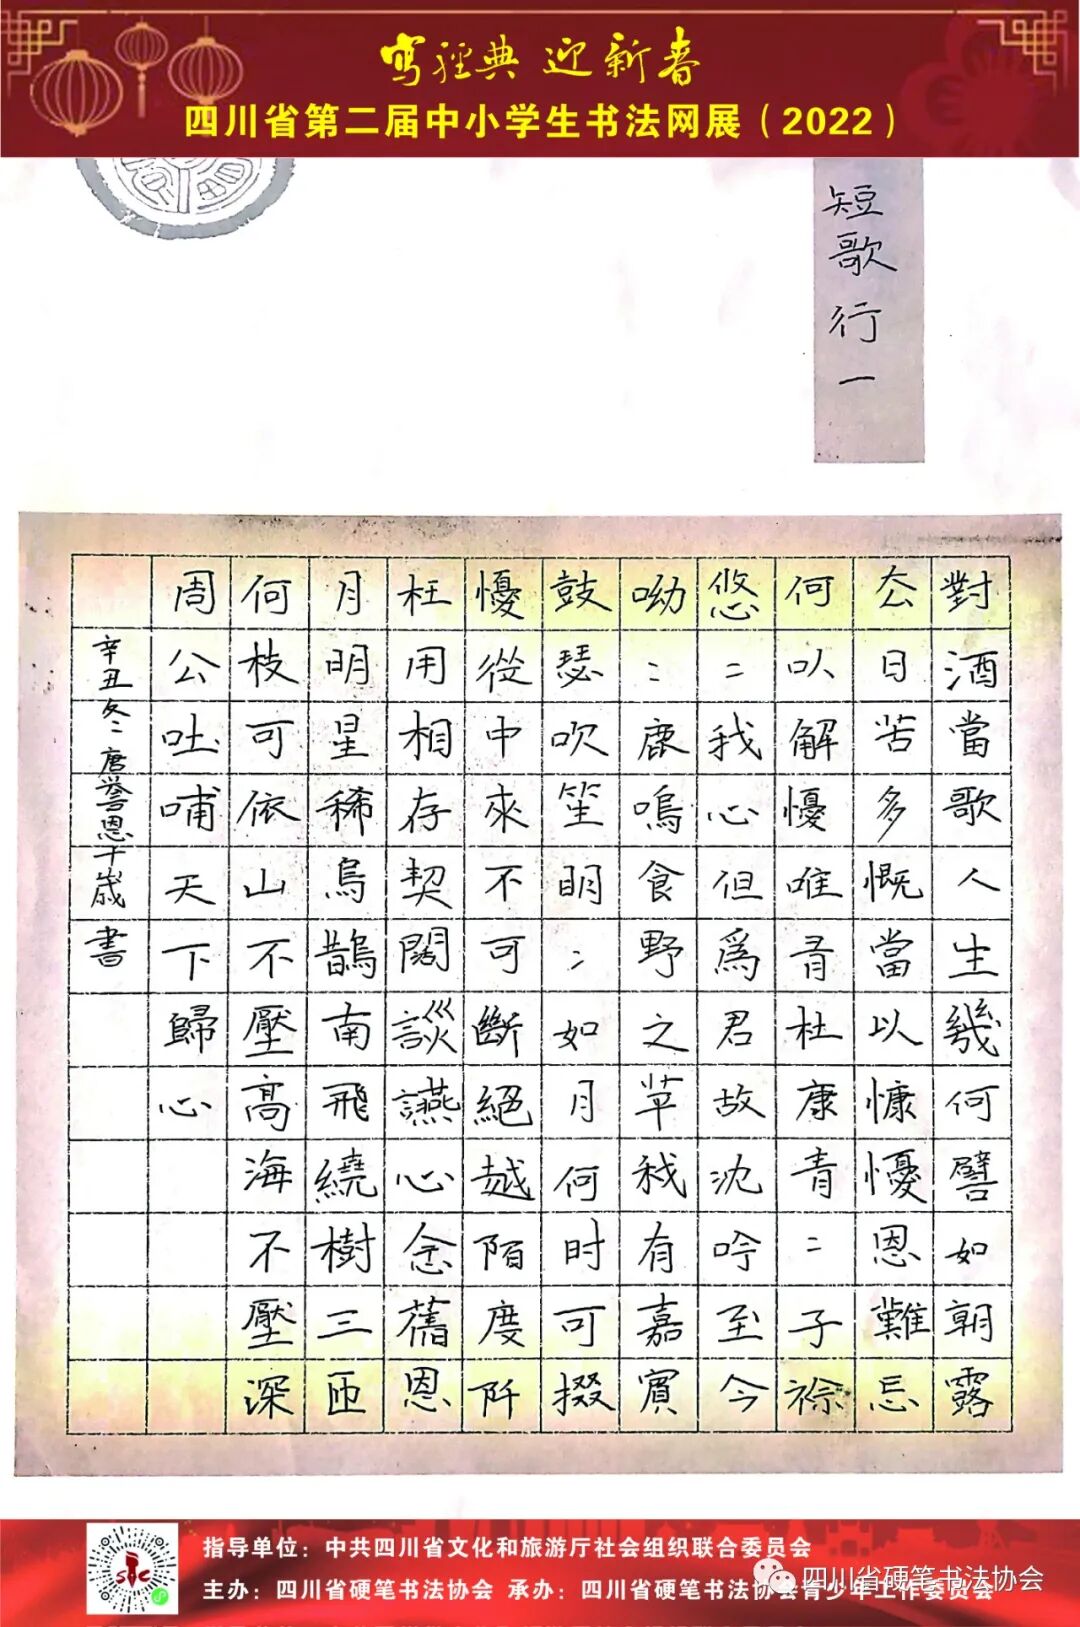 寫經典 迎新春
四川省第二届中小学生书法网展（2022）
短歌行一
對酒當歌人生幾何譬如朝露
厺日苦多慨當以慷懮恩難忘
何以解懮唯有杜康青二子衿
悠二我心但爲君故沈吟至今
呦二鹿鳴食野之苹我有嘉賓
鼓瑟吹笙明二如月何時可掇
懮從中來不可斷絕越陌度阡
枉用相存契闊談讌心念舊恩
月明星稀烏鵲南飛繞樹三匝
何枝可依山不壓高海不壓深
周公吐哺天下歸心
辛丑冬唐誉恩十歲書
指导单位：中共四川省文化和旅游厅社会组织联合委员会
主办：四川省硬笔书法协会 承办：四川省硬笔书法协会青少年工作委员会
四川省硬笔书法协会